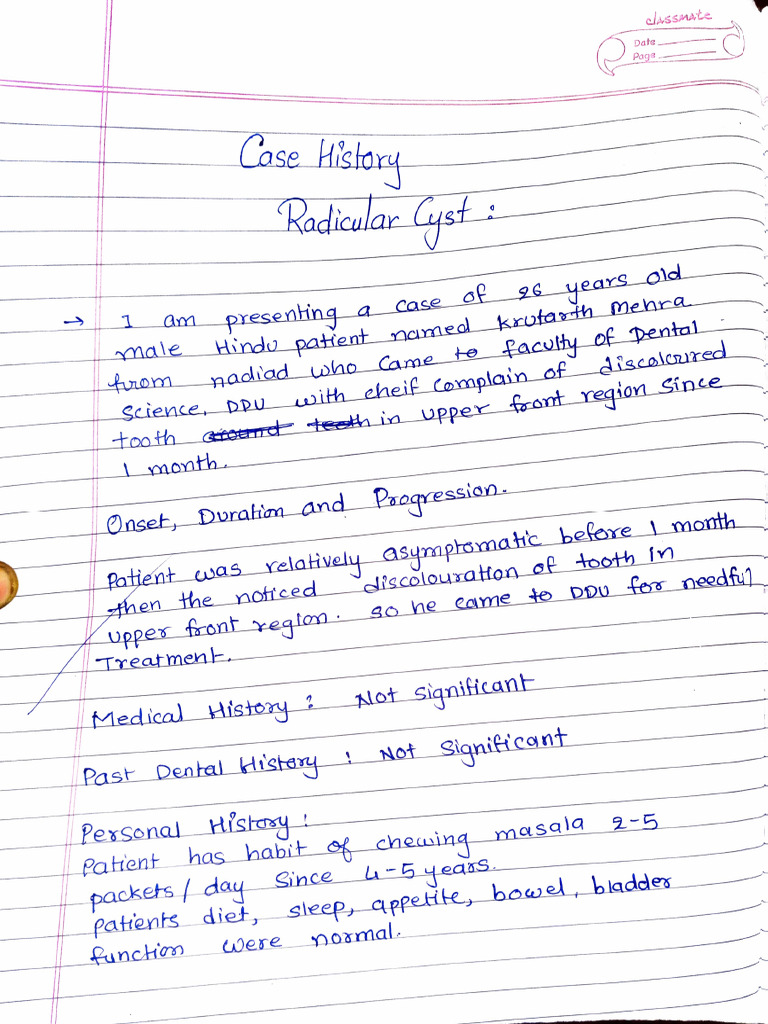 classmate
Date
Page
Case History
Radicular Cyst :
→ I am presenting a case of 26 years old
male Hindu patient named Krutarth Mehra
from nadiad who came to faculty of Dental
Science, DDU with cheif complain of discoloured
tooth around teeth in upper front region since
1 month.
Onset, Duration and Progression.
Patient was relatively asymptomatic before 1 month
then the noticed discolouration of tooth in
upper front region. so he came to DDU for needful
Treatment.
Medical History : Not significant
Past Dental History : Not Significant
Personal History :
Patient has habit of chewing masala 2-5
packets / day since 4-5 years.
Patients diet, sleep, appetite, bowel, bladder
function were normal.